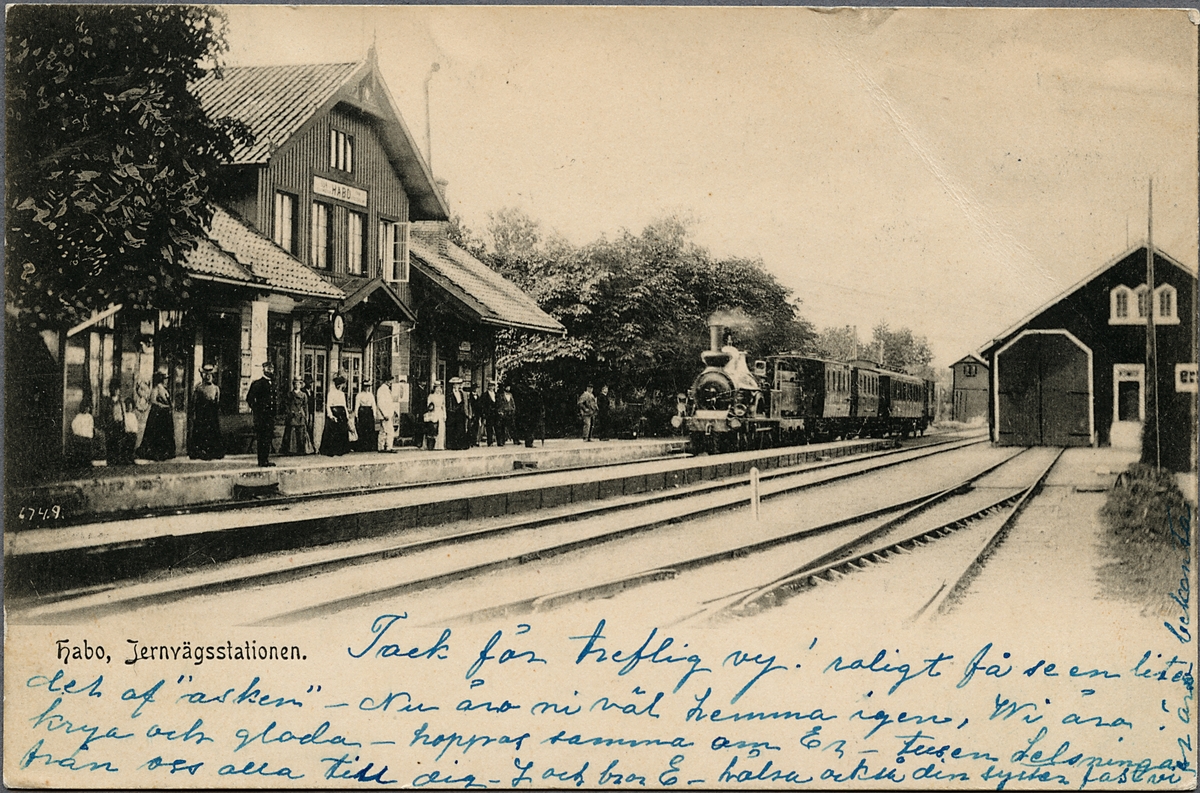 HABO
6749.
Habo, Jernvägsstationen.
Tack för treflig vy! roligt få se en lite
det af "asken" - Nu äro ni väl hemma igen, Wi äro
krya och glada - hoppas samma om Er - tusen helsningar
från oss alla till dig - I och bror E - hälsa också din syster fast vi
ej äro bekanta!